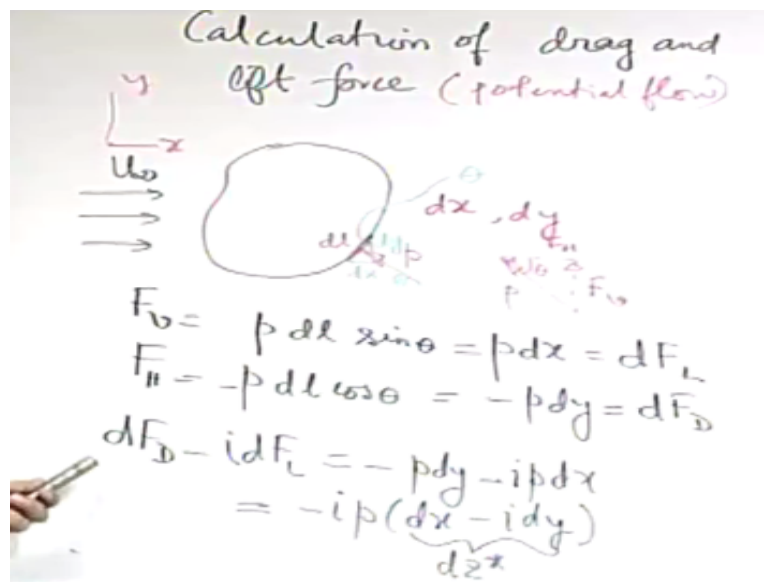 Calculation of drag and
lift force (potential flow)
y
x
U∞
θ
dx, dy
dl
dy
p
dx
θ
F_H
θ
p
F_v
F_v = p dl sinθ = pdx = dF_L
F_H = -p dl cosθ = -pdy = dF_D
dF_D - idF_L = - pdy - ipdx
= -ip(dx - idy)
dz*